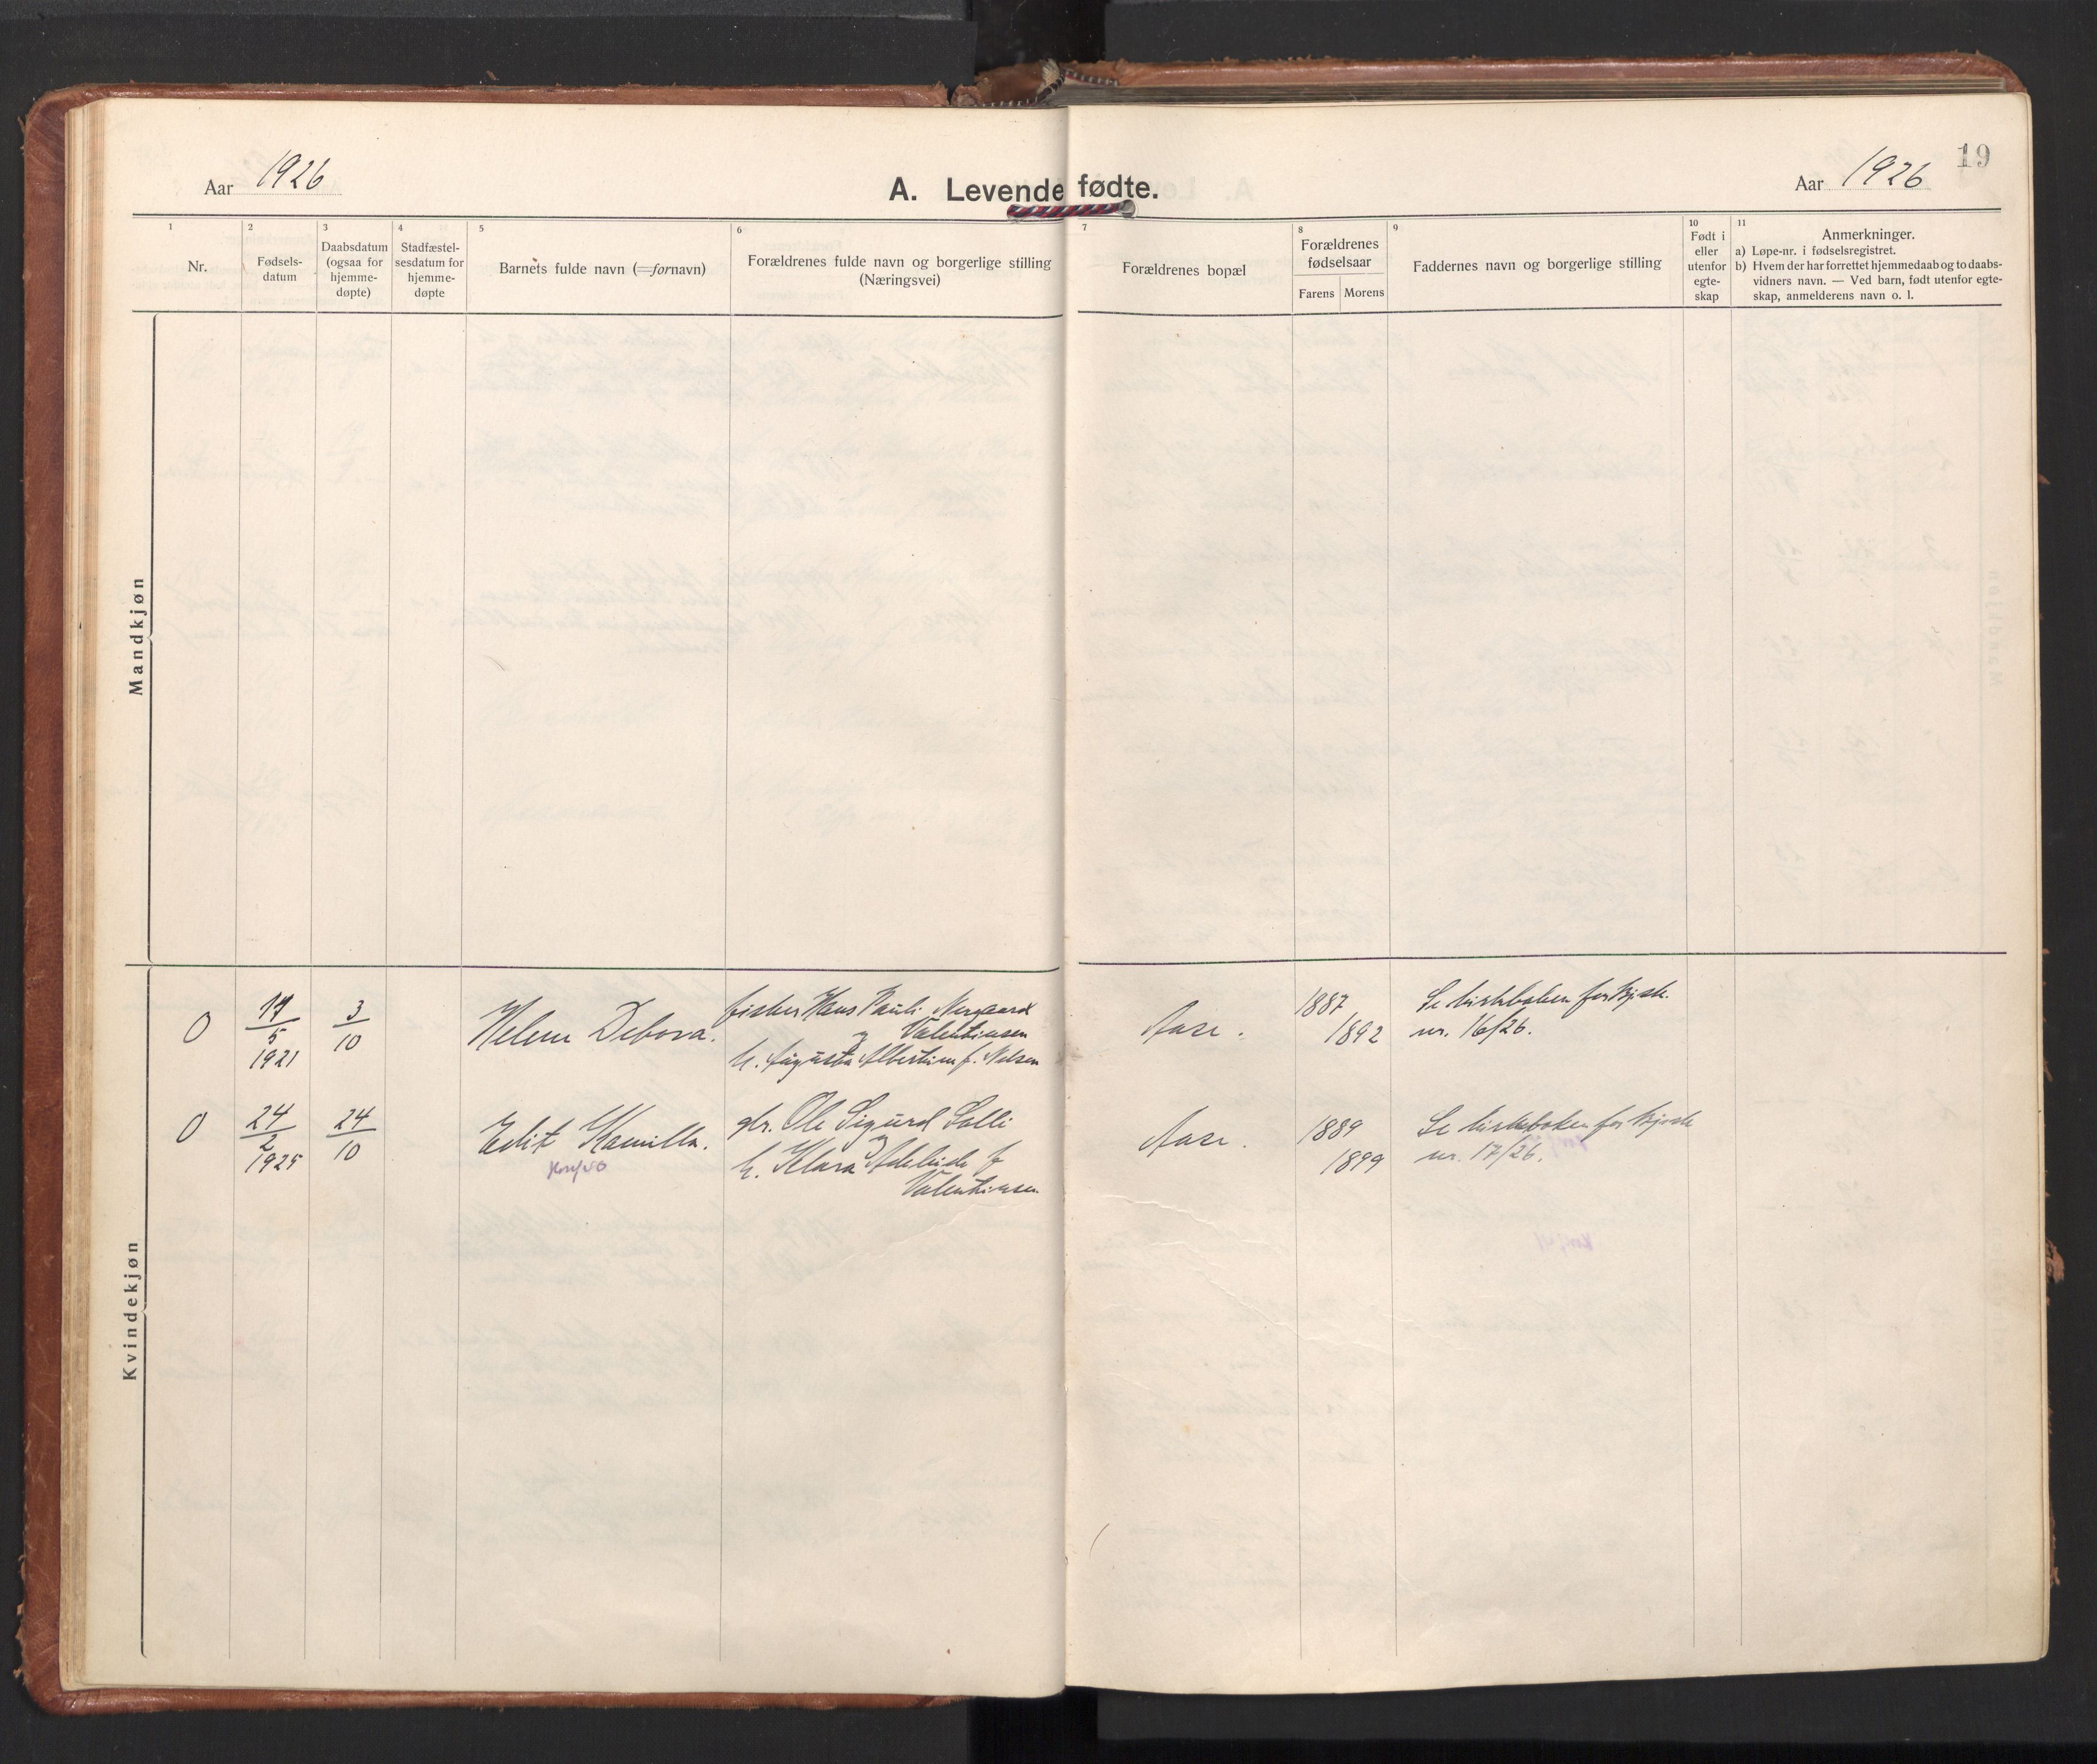 Aar 1926
A. Levende fødte.
Aar 1926
19
1
Nr.
2
Fødsels-
datum
3
Daabsdatum
(ogsaa for
hjemme-
døpte)
4
Stadfæstel-
sesdatum for
hjemme-
døpte
5
Barnets fulde navn (=fornavn)
6
Forældrenes fulde navn og borgerlige stilling
(Næringsvei)
7
Forældrenes bopæl
8
Forældrenes
fødselsaar
Farens Morens
9
Faddernes navn og borgerlige stilling
10
Født i
eller
utenfor
egte-
skap
11
Anmerkninger.
a) Løpe-nr. i fødselsregistret.
b) Hvem der har forrettet hjemmedaab og to daabs-
vidners navn. — Ved barn, født utenfor egte-
skap, anmelderens navn o. l.
Mandkjøn
Kvindekjøn
0
17
5
1921
3
10
Helene Debora.
fisker Hans Pauli Nergaard
og Valentinsen
h. Augusta Albertine f. Nelsen
Aase.
1887
1892
Se kirkeboken for
nr. 16/26.
0
24
2
1925
24
10
Edit Kamilla.
Konf/40
gbr. Ole Sigurd Solli
og
h. Klara Adeleide f
Valentinsen
Aase.
1889
1899
Se kirkeboken for
nr. 17/26.